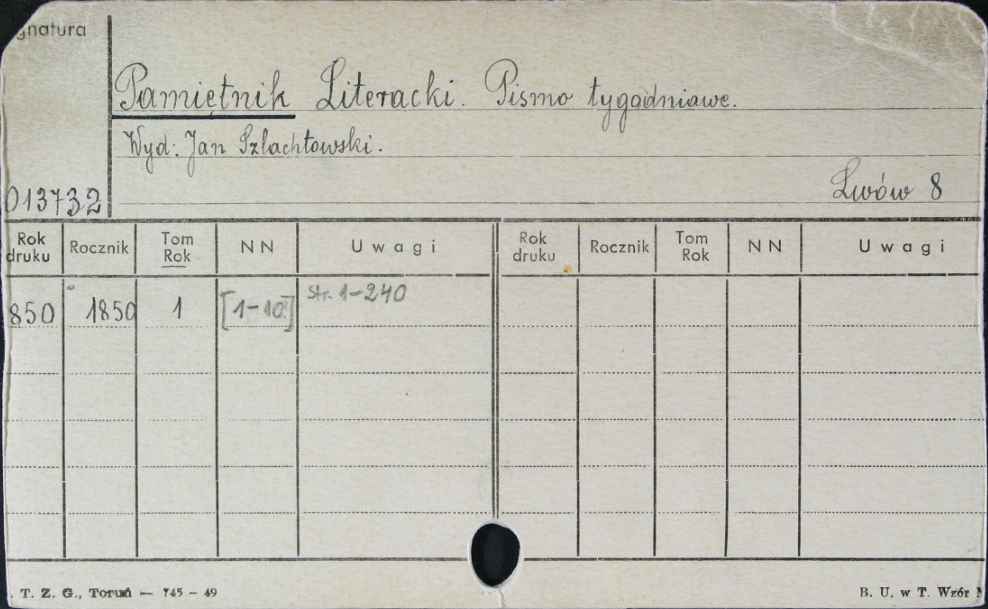 gnatura
Pamiętnik Literacki. Pismo tygodniawe.
Wyd: Jan Szlachtowski.
013732
Lwów 8
Rok druku Rocznik Tom Rok NN Uwagi Rok druku Rocznik Tom Rok NN Uwagi
850 1850 1 [1-10] str. 1-240
. T. Z. G., Toruń — 745 - 49
B. U. w T. Wzór